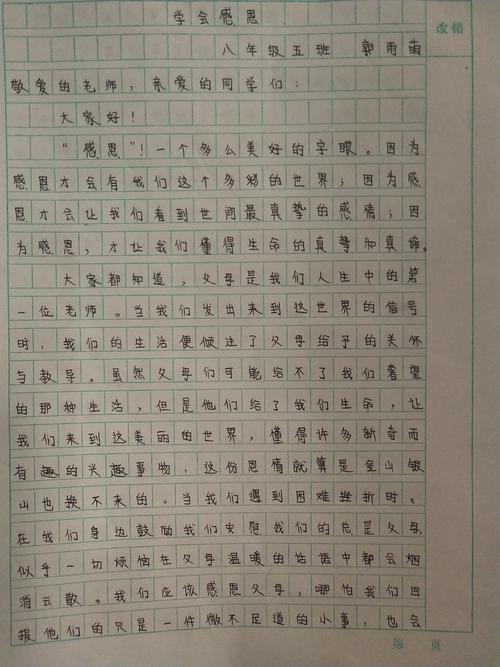 学会感恩
八年级五班 郭雨萌
改错
敬爱的老师，亲爱的同学们：
大家好！
“感恩”！一个多么美好的字眼。因为
感恩才会有我们这个多彩的世界；因为感
恩才会让我们看到世间最真挚的感情；因
为感恩，才让我们懂得生命的真挚和真谛。
大家都知道，父母是我们人生中的第
一位老师。当我们发出来到这世界的信号
时，我们的生活便倾注了父母给予的关怀
与教导。虽然父母们可能给不了我们奢望
的那种生活，但是他们给了我们生命，让
我们来到这美丽的世界，懂得许多新奇而
有趣的兴趣事物，这份恩情就算是金山银
山也换不来的。当我们遇到困难挫折时、
在我们身边鼓励我们安慰我们的总是父母，
似乎一切烦恼在父母温暖的话语中都会烟
消云散。我们应该感恩父母，哪怕我们回
报他们的只是一件微不足道的小事，也会
第 页